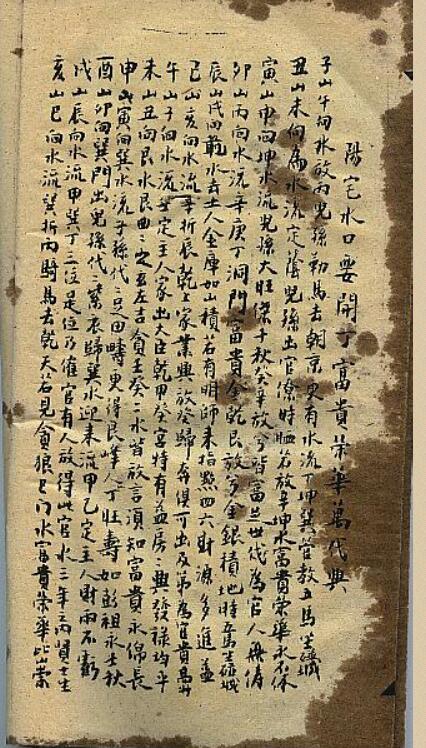 陽宅水口要開丁富貴榮華萬代興
子山午向水放丙兒孫勒馬去朝京更有水流丁坤巽管教五馬坐
丑山未向水流定蔭兒孫出官僚時若放辛坤水富貴榮華永不休
寅山申向坤水流兒孫大旺傑千秋癸辛放兮皆富三世代為官人
卯山丙向水流辛庚丁洞門富貴全乾艮放兮金銀積地時五馬
辰山戌向乾水去主人金庫如山積若有明師來指點四六財源多進益
巳山亥向水流辛折辰乾上家業興放癸歸俱可出及第為官貴
午山子向水流定主人家出大臣乾甲癸宮特有益房房興發祿均平
未山丑向艮水艮曲之玄左吉貪壬癸二水皆放言須知富貴永綿長
申山寅向巽水流子孫代代足田疇更得艮峰人丁旺壽如彭祖永千秋
酉山卯向巽門出兒孫代紫衣歸巽水迎來流甲乙定主人財兩不虧
戌山辰向水流甲巽丁三位是位乃催官有人放得此官水三年兩賢士
亥山巳向水流巽折丙騎馬去乾天若見貪狼上門水富貴榮華比山崇